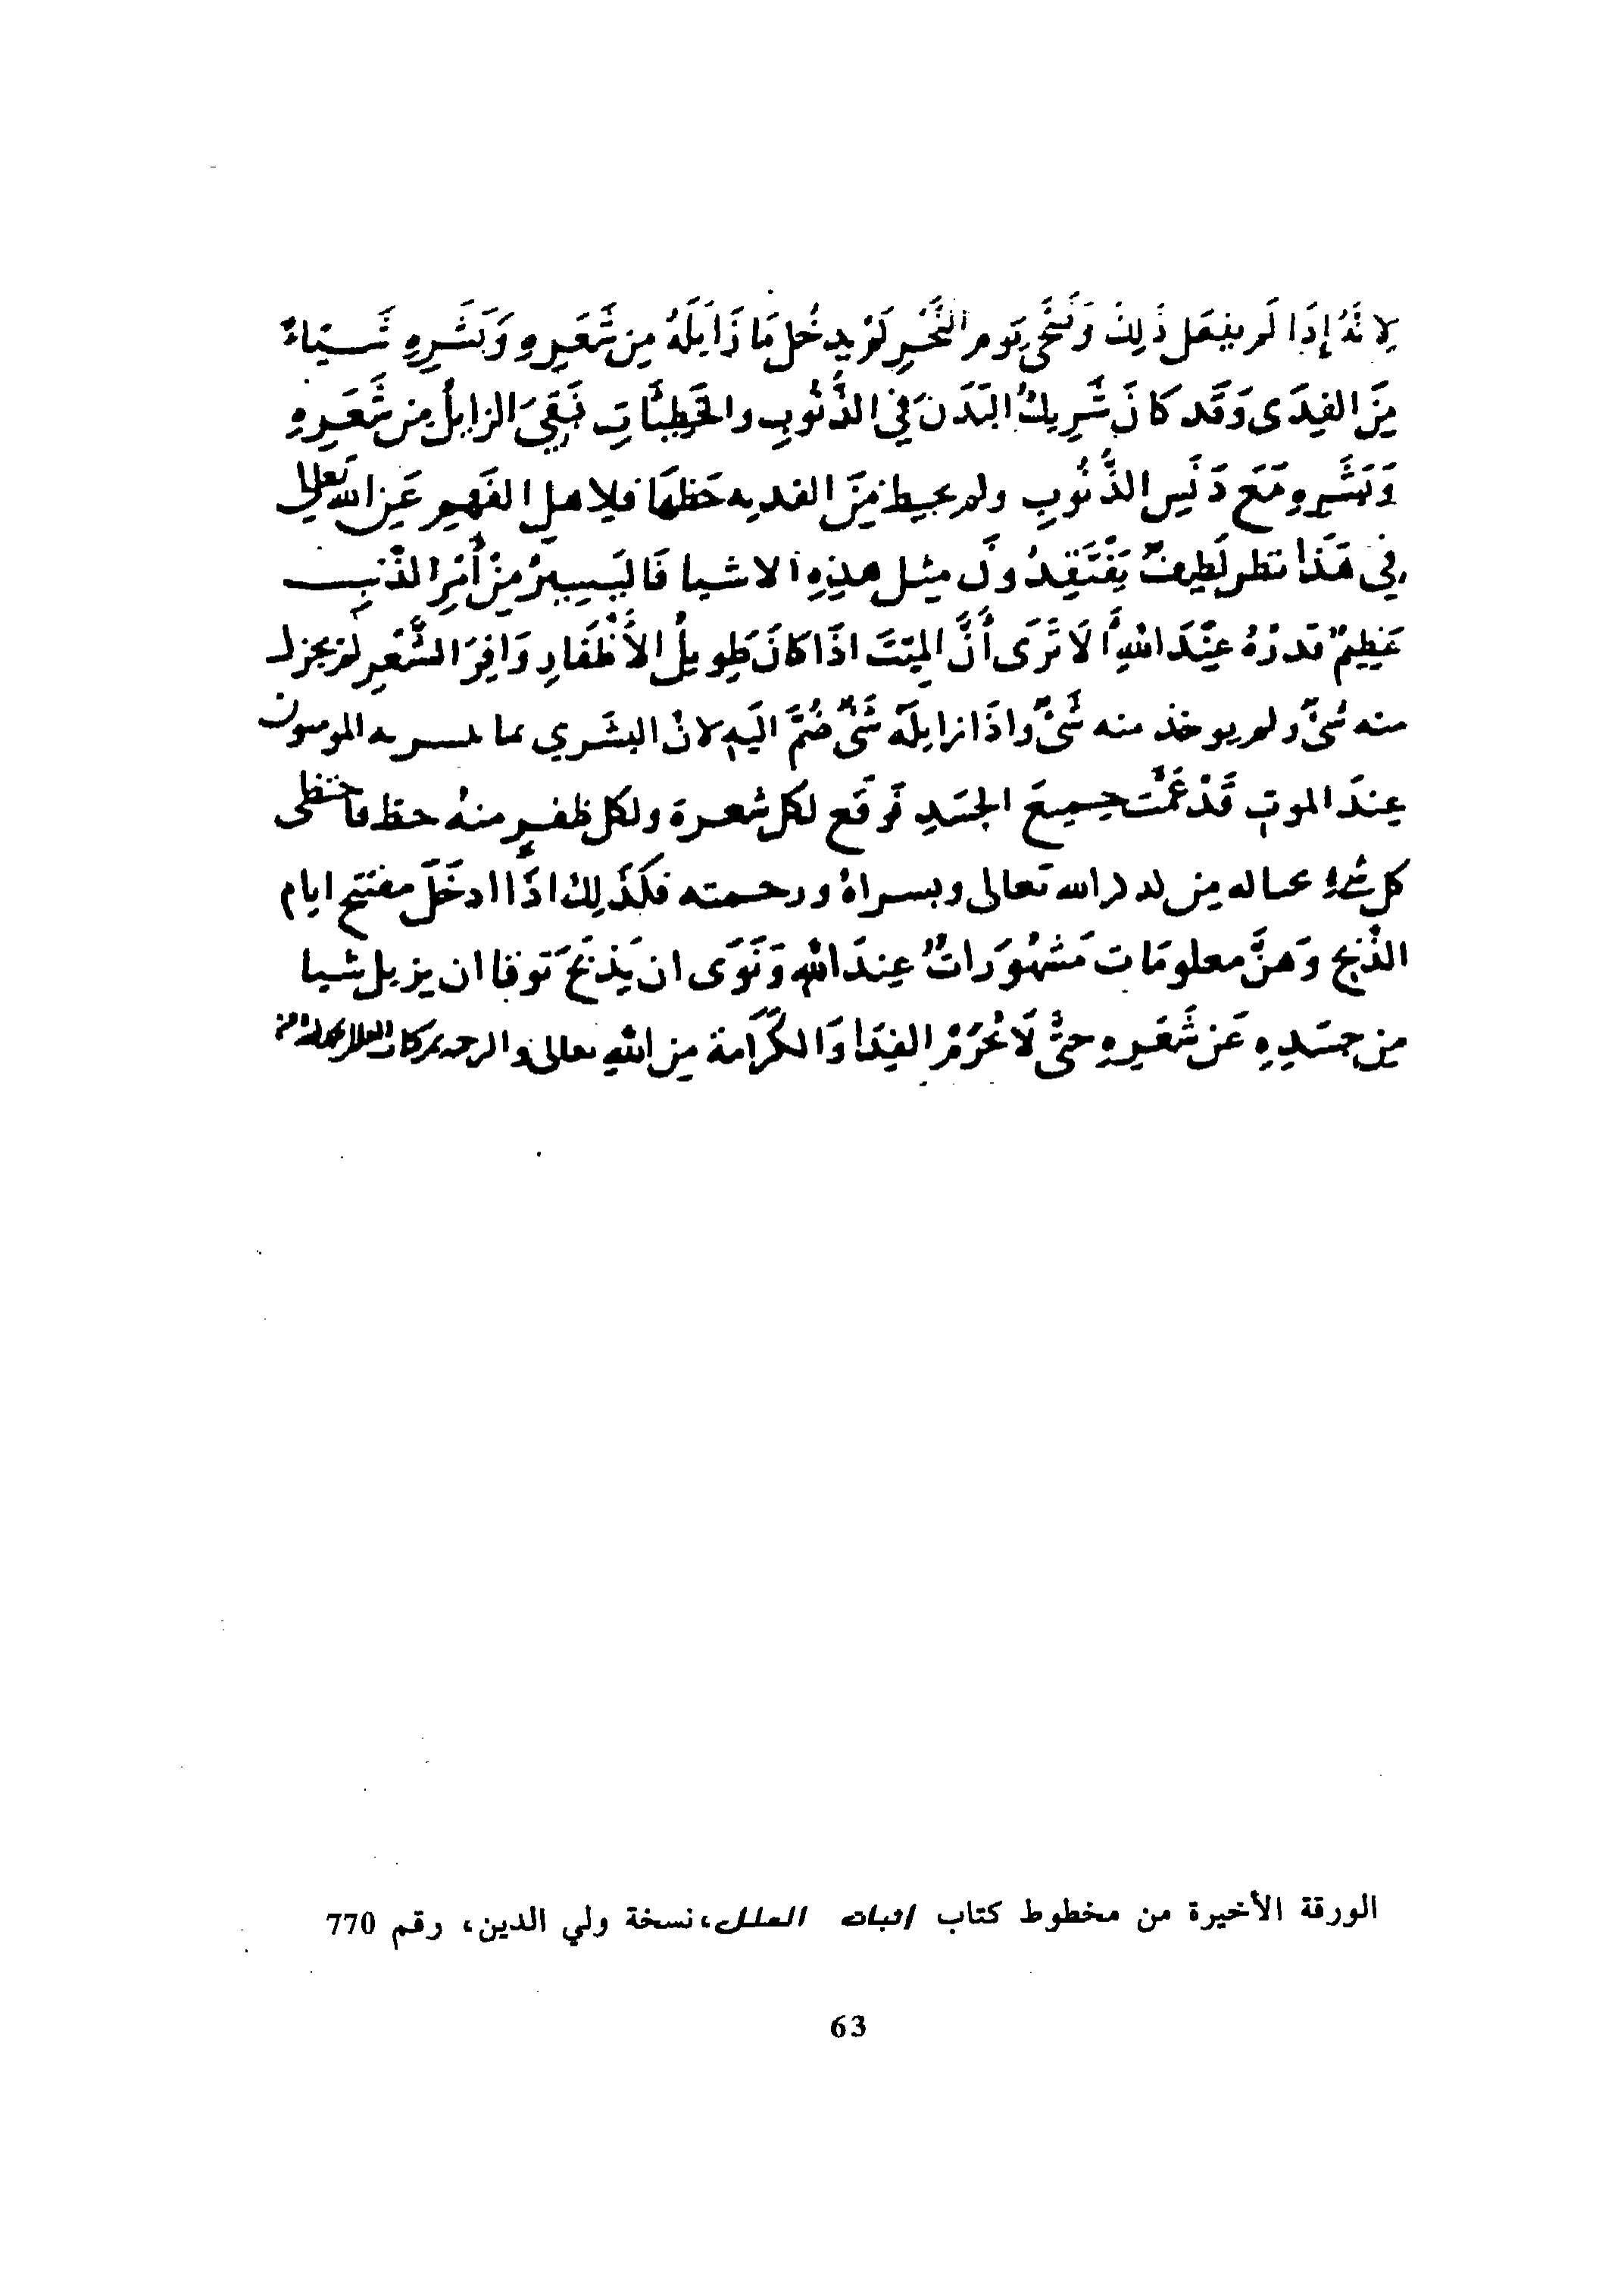 لِاَنَّهُ إِذَا لَم يفعَل ذَلِكَ وَضَحَّى يَوم النَّحْرِ لَمْ يدخُل مَا زَايَلَهُ مِن شَعَرِهِ وَبَشَرِهِ شَيْاءً
مِنَ الفِدَى وَقَد كَانَ شَرِيكُ البَدَنَ فِي الذُّنُوبِ والخَطِيئَاتِ فَبَقِيَ الزايلُ مِن شَعَرِهِ
وَبَشَرِهِ مَعَ دَنَسِ الذُّنُوبِ ولم يحيط مِنَ الفديه حَظهَا فلاهلِ الفَهمِ عَنِ الله تَعَالَى
فِي هَذَا نظر لَطِيفٌ يَفْتَقِدُونَ مثل هذِهِ الاشيا فَاليَسِيرُ مِنْ أَثَرِ الذَّنبِ
عَظِيمٌ قَدرُهُ عِنْدَ اللهِ أَلَا تَرَى أَنَّ الميِّتَ اذَا كانَ طَوِيلُ الأَظْفَارِ وَافِرَ الشَّعْرِ لم يجزل
منه شَيٌ ولم يوخذ منه شَيٌ واذَا زايلَهُ شَيٌ ضُمَّ اليَهِ لانَّ البشَري بما الموسون
عِندَ الموتِ قَدْ عَمَّت جميعَ الجَسَدِ فَوَقَع لكل شعرة ولكل ظفرٍ منهُ حظ فاحتظى
كل من لدن الله تعالى ورحمته فكَذَلِكَ اذَا ادخَلَ مفتتح ايام
الذَّبح وَهنَّ معلومَات مَشهُورَاتٌ عِندَ اللهِ وَنَوَى ان يَذبَحَ تَوقا ان يزيل شيا
مِن جسَدِهِ عَن شَعَرِهِ حتَّى لَا تُحرَمُ الفِدَا وَالكَرَامة مِن اللهِ تعالى
الورقة الأخيرة من مخطوط كتاب اثبات العلل، نسخة ولي الدين، رقم 770
63